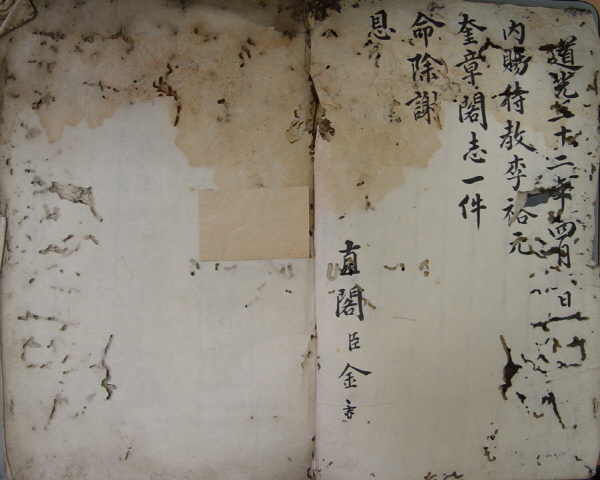 道光二十二年四月 日
內賜待教李裕元
奎章閣志一件
命除謝
恩
直閣臣金